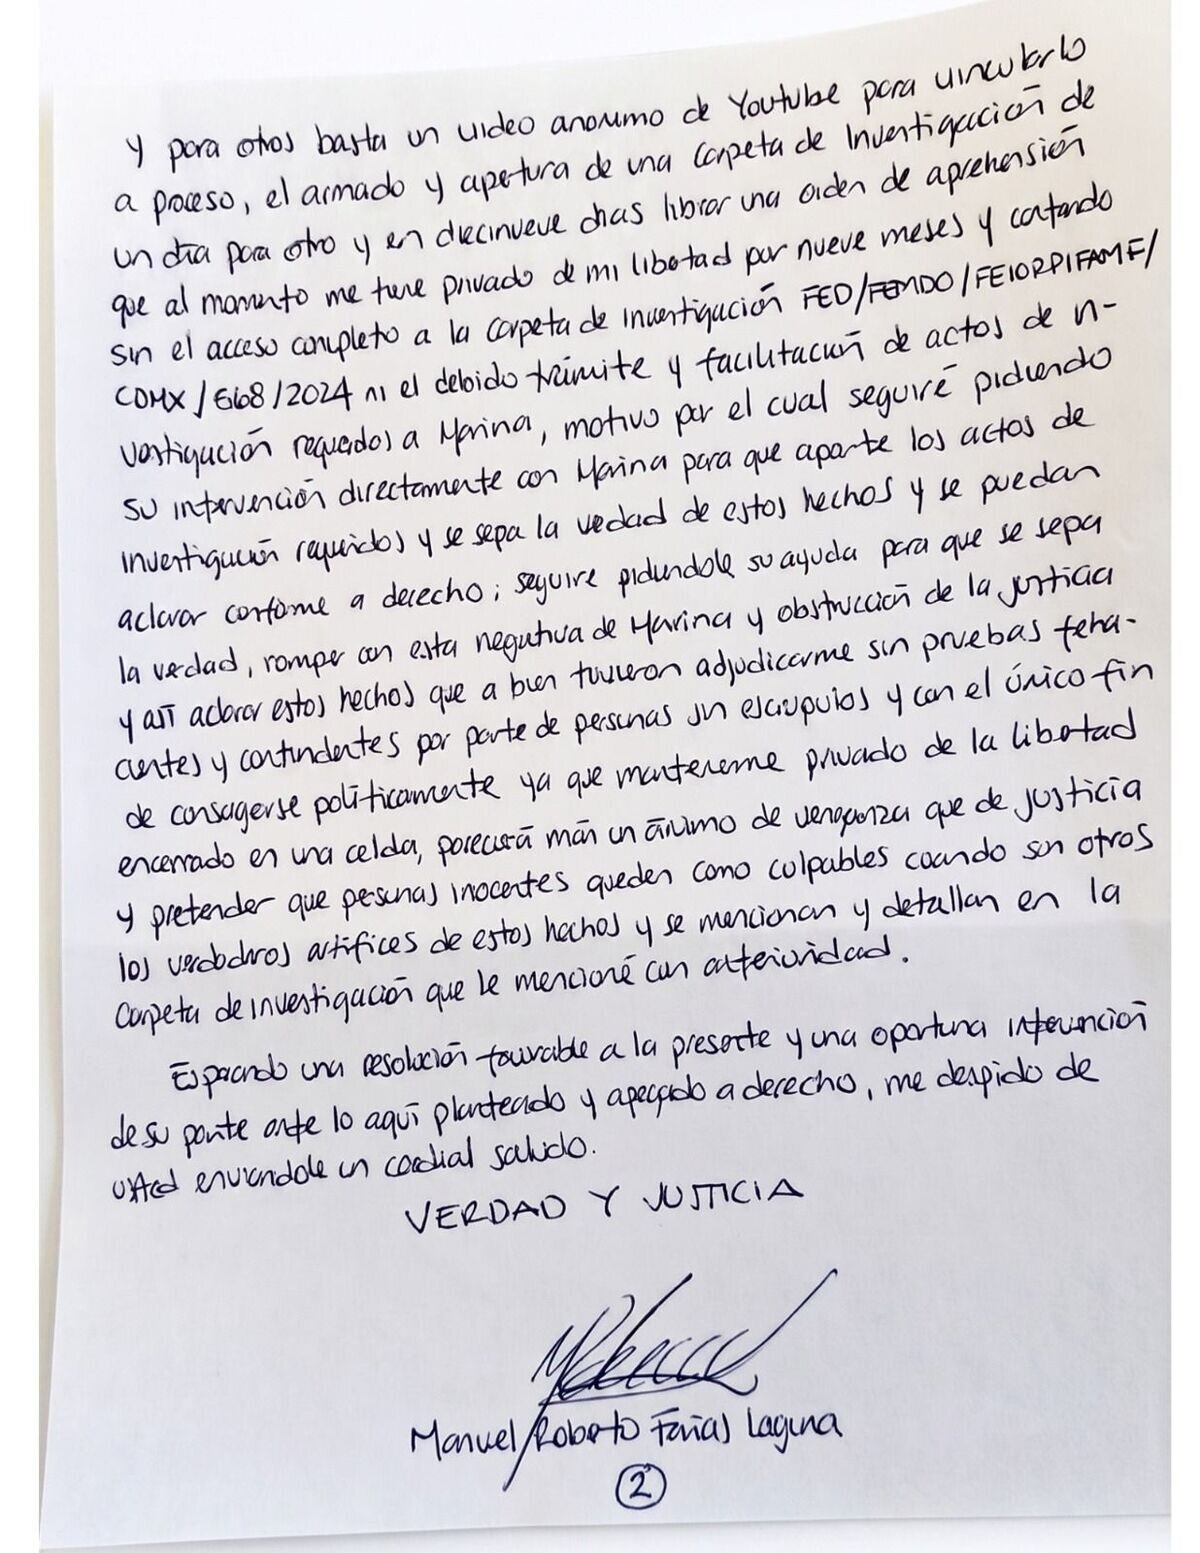 y para otros basta un video anonimo de Youtube para vincularlo
a proceso, el armado y apertura de una Carpeta de Investigación de
un día para otro y en diecinueve dias librar una orden de aprehensión
que al momento me tiene privado de mi libertad por nueve meses y contando
sin el acceso completo a la Carpeta de investigación FED/FEMDO/FEIORPIFAME/
CDMX/668/2024 ni el debido trámite y facilitación de actos de in-
vestigación requeridos a Marina, motivo por el cual seguiré pidiendo
su intervención directamente con Marina para que aporte los actos de
investigación requeridos y se sepa la verdad de estos hechos y se puedan
aclarar conforme a derecho; seguire pidiendole su ayuda para que se sepa
la verdad, romper con esta negativa de Marina y obstrucción de la justicia
y así aclarar estos hechos que a bien tuvieron adjudicarme sin pruebas feha-
cientes y contundentes por parte de personas sin escrupulos y con el único fin
de consagrarse políticamente ya que mantenerme privado de la libertad
encerrado en una celda, parecerá más un ánimo de venganza que de justicia
y pretender que personas inocentes queden como culpables cuando son otros
los verdaderos artifices de estos hechos y se mencionan y detallan en la
Carpeta de investigación que le mencioné con anterioridad.
Esperando una resolución favorable a la presente y una oportuna intervención
de su parte ante lo aquí planteado y apegado a derecho, me despido de
usted enviandole un cordial saludo.
VERDAD Y JUSTICIA
Manuel Roberto Farías Laguna
2